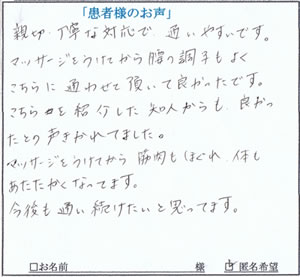 「患者様のお声」
親切、丁寧な対応で、通いやすいです。
マッサージをうけてから腰の調子もよく
こちらに通わせて頂いて良かったです。
こちらを紹介した知人からも、良かっ
たとの声きかれてました。
マッサージをうけてから筋肉もほぐれ、体も
あたたかくなってます。
今後も通い続けたいと思ってます。
□お名前 様 ☑匿名希望